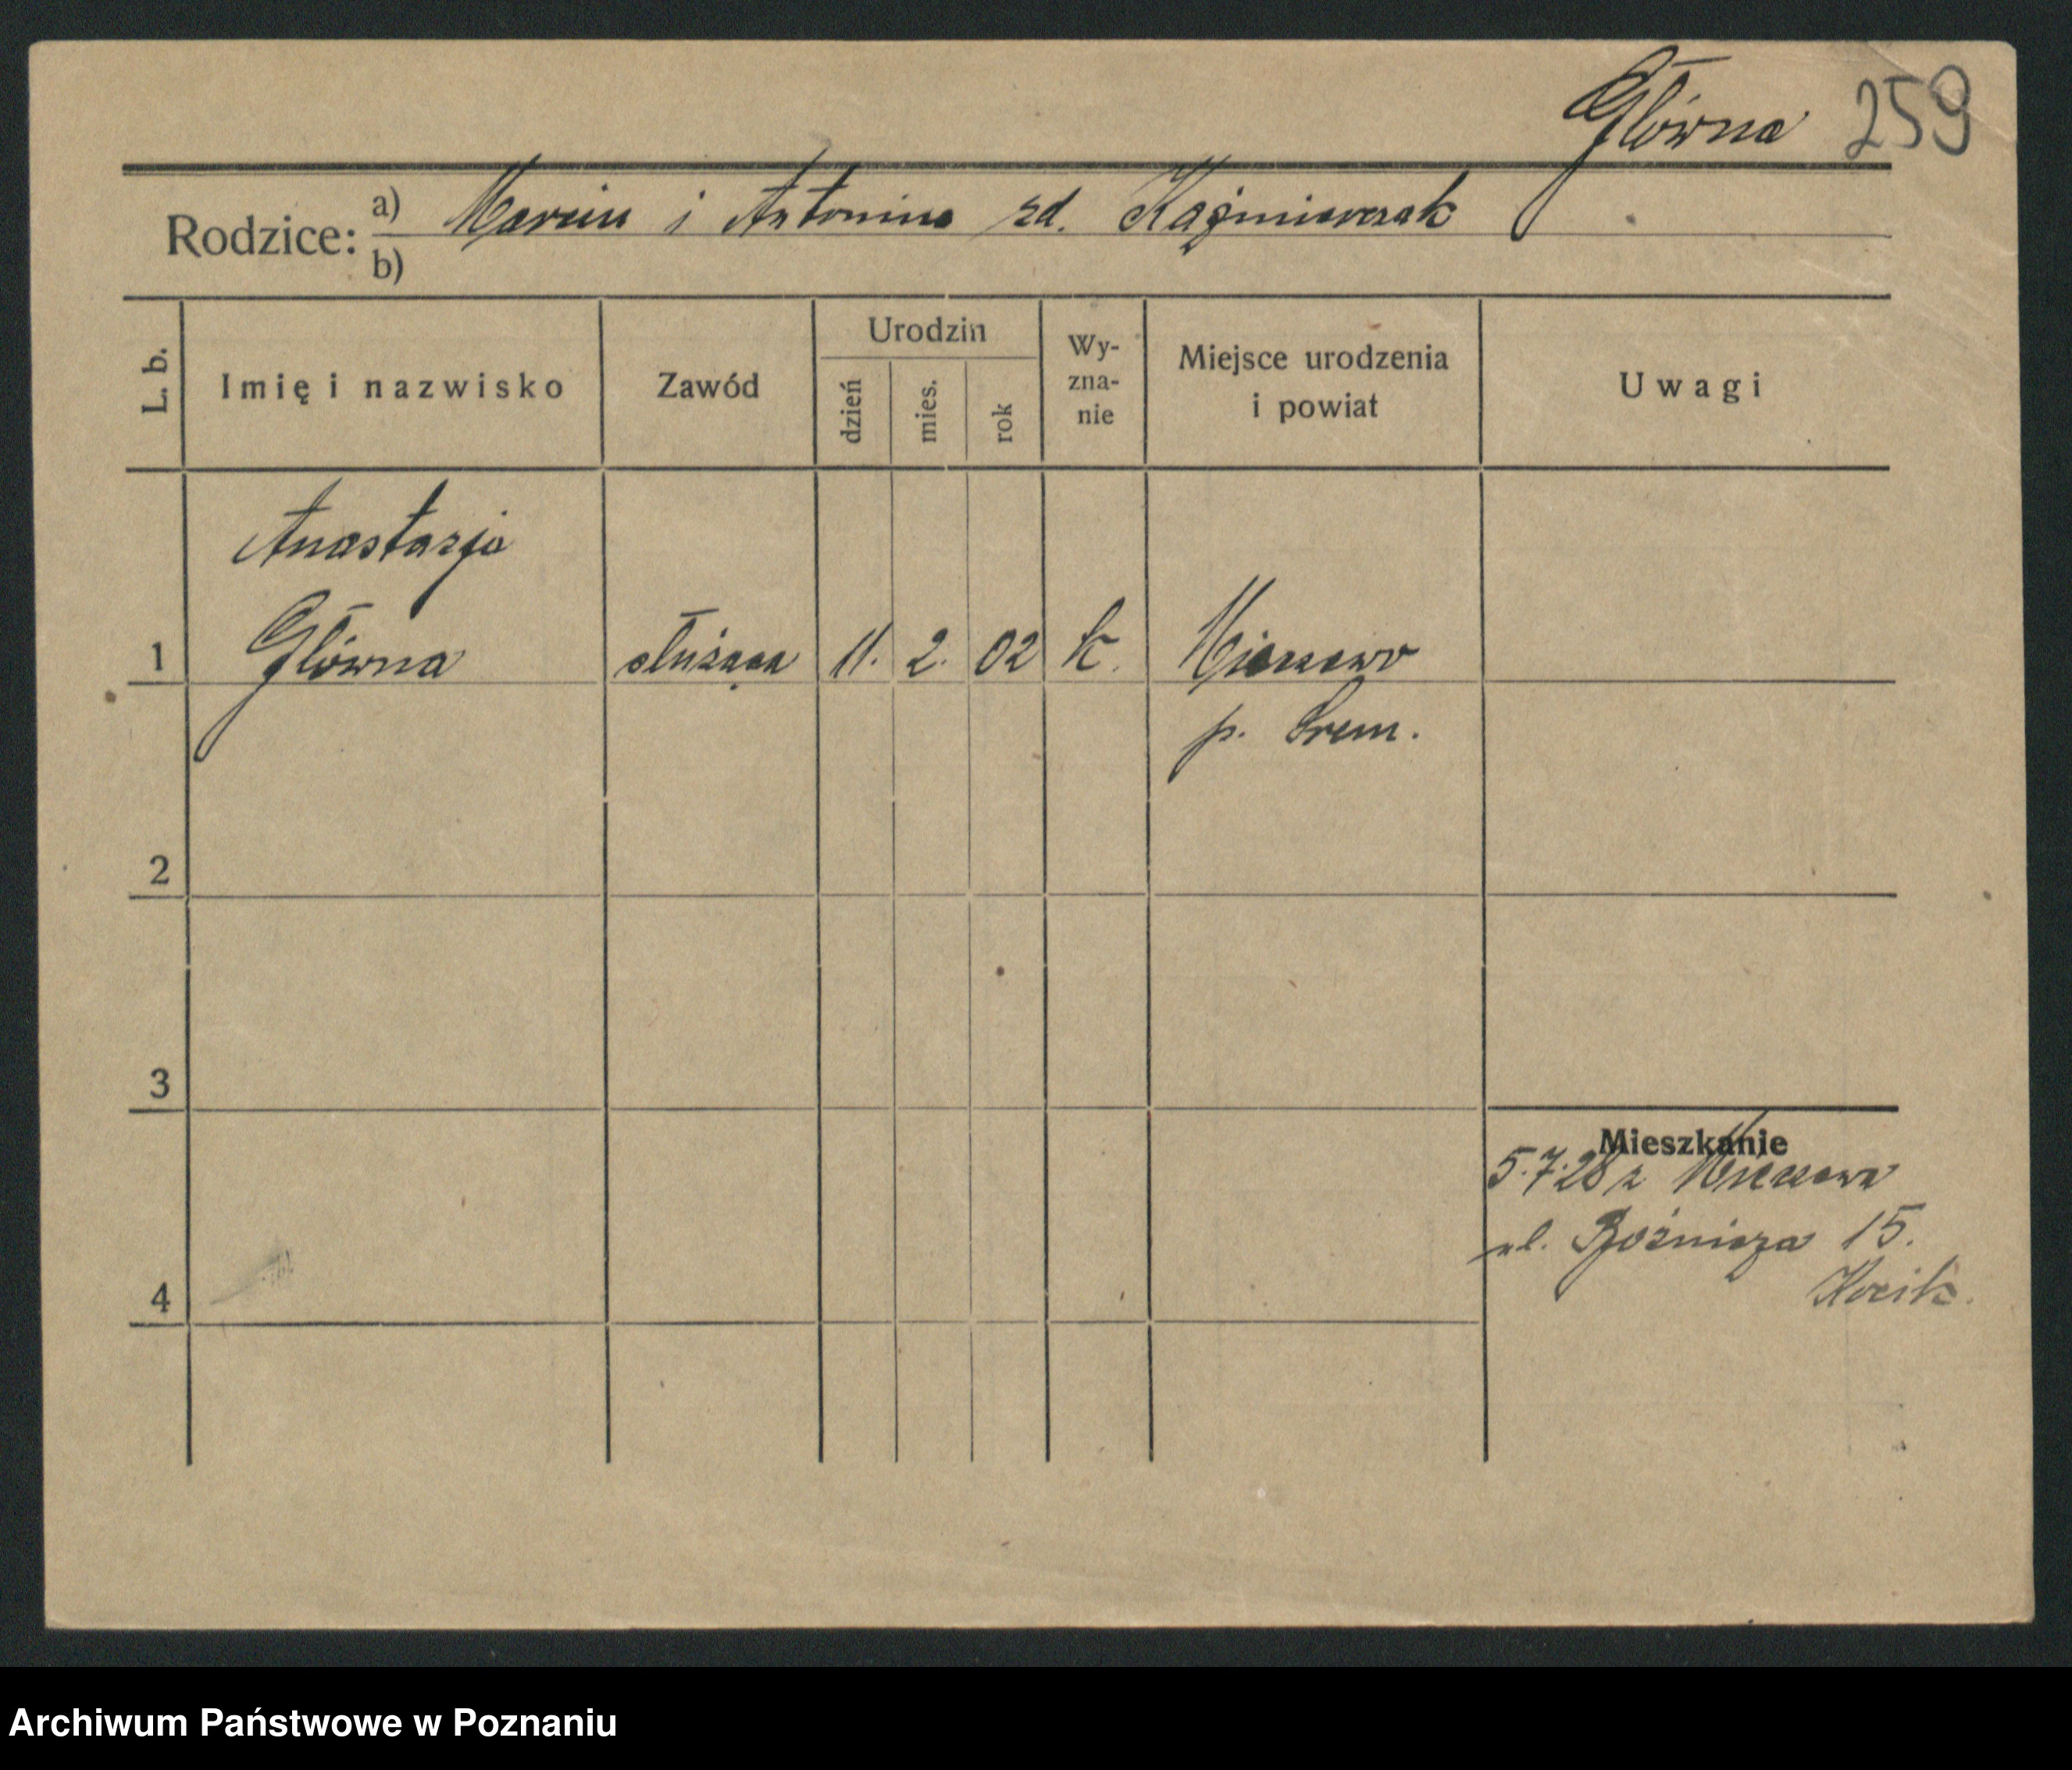 Główna 259
Rodzice: a) Marcin i Antonina zd. Kaźmierczak
b)
L. b. Imię i nazwisko Zawód Urodzin dzień mies. rok Wy-zna-nie Miejsce urodzenia i powiat Uwagi
Anastazja
1 Główna służąca 11. 2. 02 k. Mieszewo
p. Śrem.
2
3
Mieszkanie
5.7.28 z
ul. Bóżnicza 15.
4
Archiwum Państwowe w Poznaniu